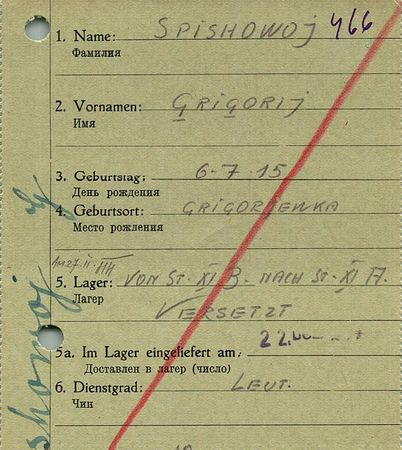 1. Name: SPISHOWOJ 466
Фамилия
2. Vornamen: GRIGORIJ
Имя
3. Geburtstag: 6-7-15
День рождения
4. Geburtsort: GRIGORJEWKA
Место рождения
5. Lager: VON ST-XI B. NACH ST-XI A.
Лагер
VERSETZT
5a. Im Lager eingeliefert am:
Доставлен в лагер (число)
6. Dienstgrad: LEUT.
Чин
showoj